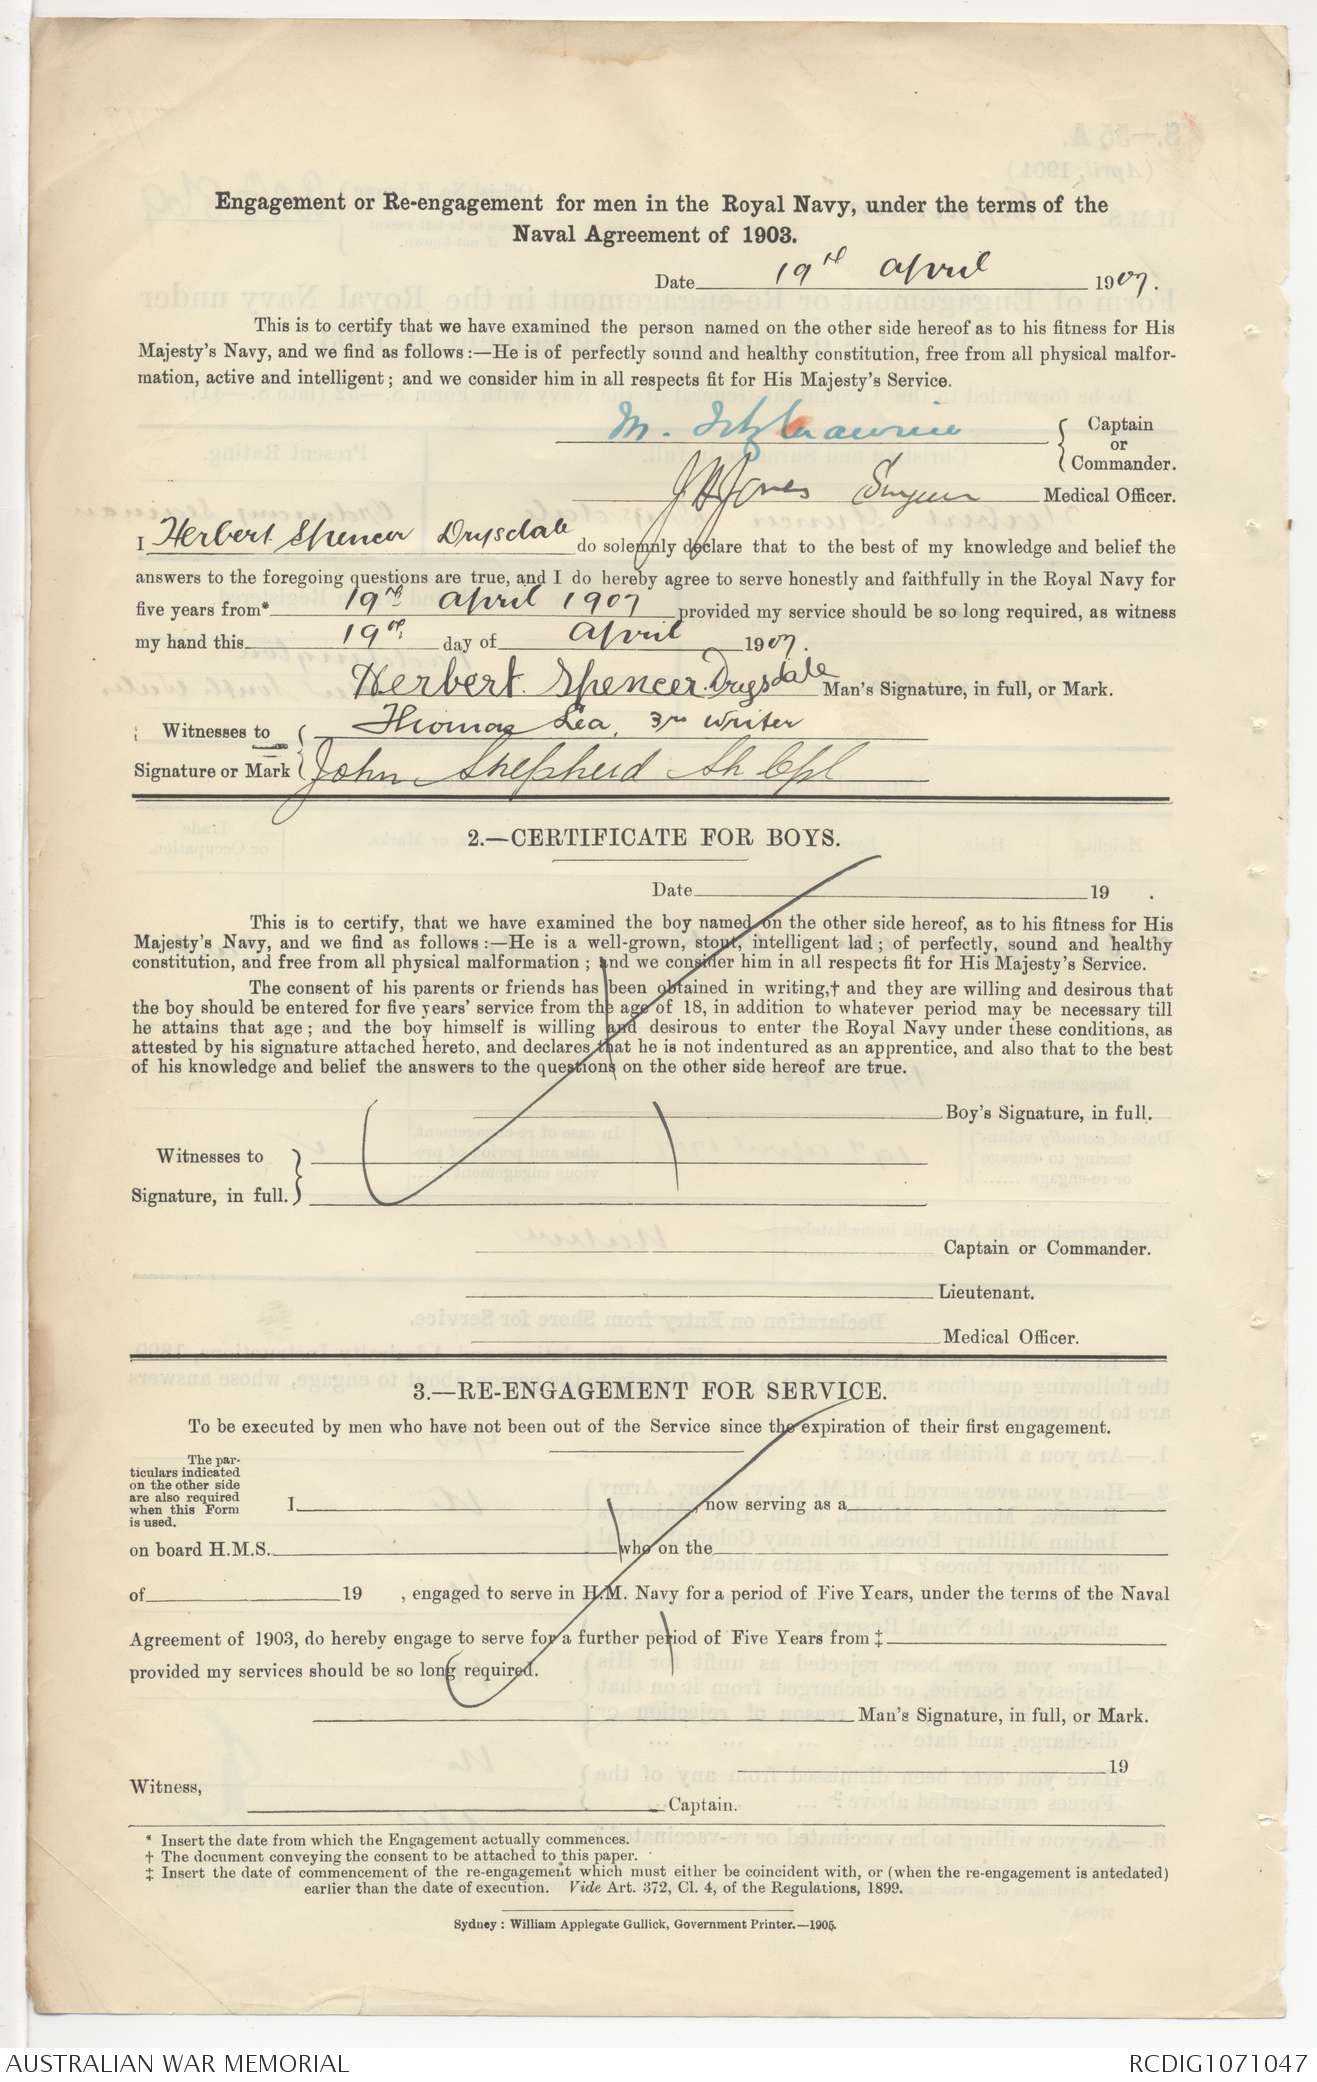 Engagement or Re-engagement for men in the Royal Navy, under the terms of the
Naval Agreement of 1903.
Date 19th April 1907.
This is to certify that we have examined the person named on the other side hereof as to his fitness for His
Majesty's Navy, and we find as follows :—He is of perfectly sound and healthy constitution, free from all physical malfor-
mation, active and intelligent ; and we consider him in all respects fit for His Majesty's Service.
M. Fitzmaurice Captain
or
Commander.
J H Jones Surgeon Medical Officer.
I Herbert Spencer Drysdale do solemnly declare that to the best of my knowledge and belief the
answers to the foregoing questions are true, and I do hereby agree to serve honestly and faithfully in the Royal Navy for
five years from* 19th April 1907 provided my service should be so long required, as witness
my hand this 19th day of April 1907.
Herbert Spencer Drysdale Man's Signature, in full, or Mark.
Witnesses to Thomas Lea, 3rd Writer
Signature or Mark John Shepherd Sh Cpl
2.—CERTIFICATE FOR BOYS.
Date 19 .
This is to certify, that we have examined the boy named on the other side hereof, as to his fitness for His
Majesty's Navy, and we find as follows :—He is a well-grown, stout, intelligent lad ; of perfectly, sound and healthy
constitution, and free from all physical malformation ; and we consider him in all respects fit for His Majesty's Service.
The consent of his parents or friends has been obtained in writing,† and they are willing and desirous that
the boy should be entered for five years' service from the age of 18, in addition to whatever period may be necessary till
he attains that age ; and the boy himself is willing and desirous to enter the Royal Navy under these conditions, as
attested by his signature attached hereto, and declares that he is not indentured as an apprentice, and also that to the best
of his knowledge and belief the answers to the questions on the other side hereof are true.
Boy's Signature, in full.
Witnesses to
Signature, in full.
Captain or Commander.
Lieutenant.
Medical Officer.
3.—RE-ENGAGEMENT FOR SERVICE.
To be executed by men who have not been out of the Service since the expiration of their first engagement.
The par-
ticulars indicated
on the other side
are also required
when this Form
is used.
I , now serving as a
on board H.M.S. who on the
of 19 , engaged to serve in H.M. Navy for a period of Five Years, under the terms of the Naval
Agreement of 1903, do hereby engage to serve for a further period of Five Years from ‡
provided my services should be so long required.
Man's Signature, in full, or Mark.
19
Witness,
Captain.
* Insert the date from which the Engagement actually commences.
† The document conveying the consent to be attached to this paper.
‡ Insert the date of commencement of the re-engagement which must either be coincident with, or (when the re-engagement is antedated)
earlier than the date of execution. Vide Art. 372, Cl. 4, of the Regulations, 1899.
Sydney : William Applegate Gullick, Government Printer.—1905.
AUSTRALIAN WAR MEMORIAL
RCDIG1071047